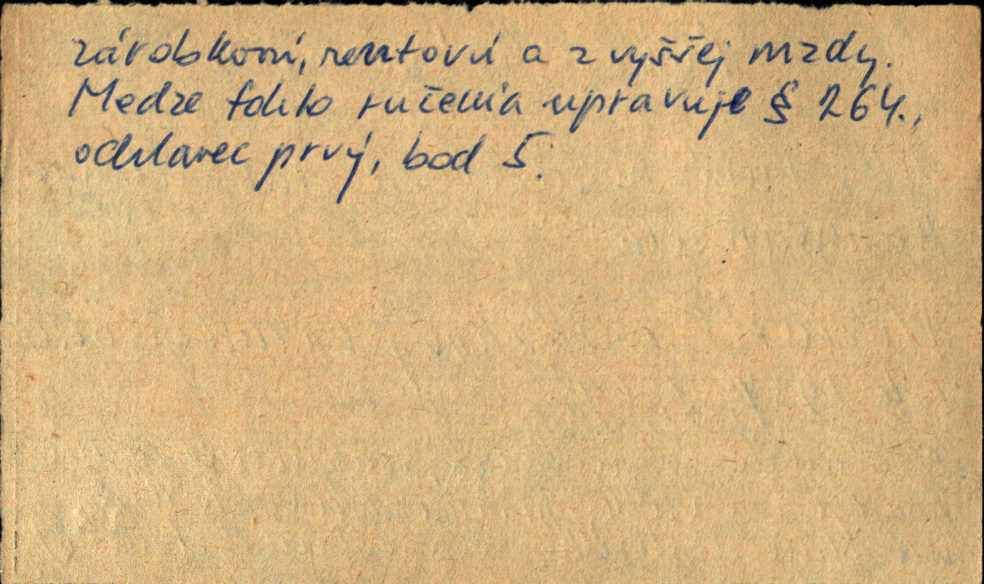 zárobkovú, rentovú a z vyššej mzdy.
Medze tohto ručenia upravuje § 264.,
odstavec prvý, bod 5.